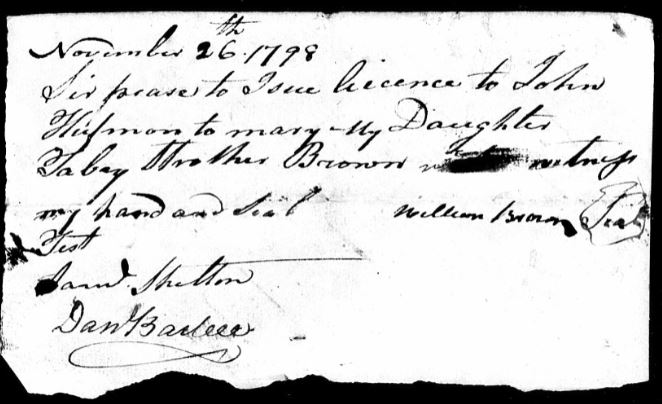 November 26th 1798
Sir please to Isue licence to John
to mary My Daughter
Tabey Brown witness
my hand and Seal William Brown Seal
Test
Saml. Shelton
Danl